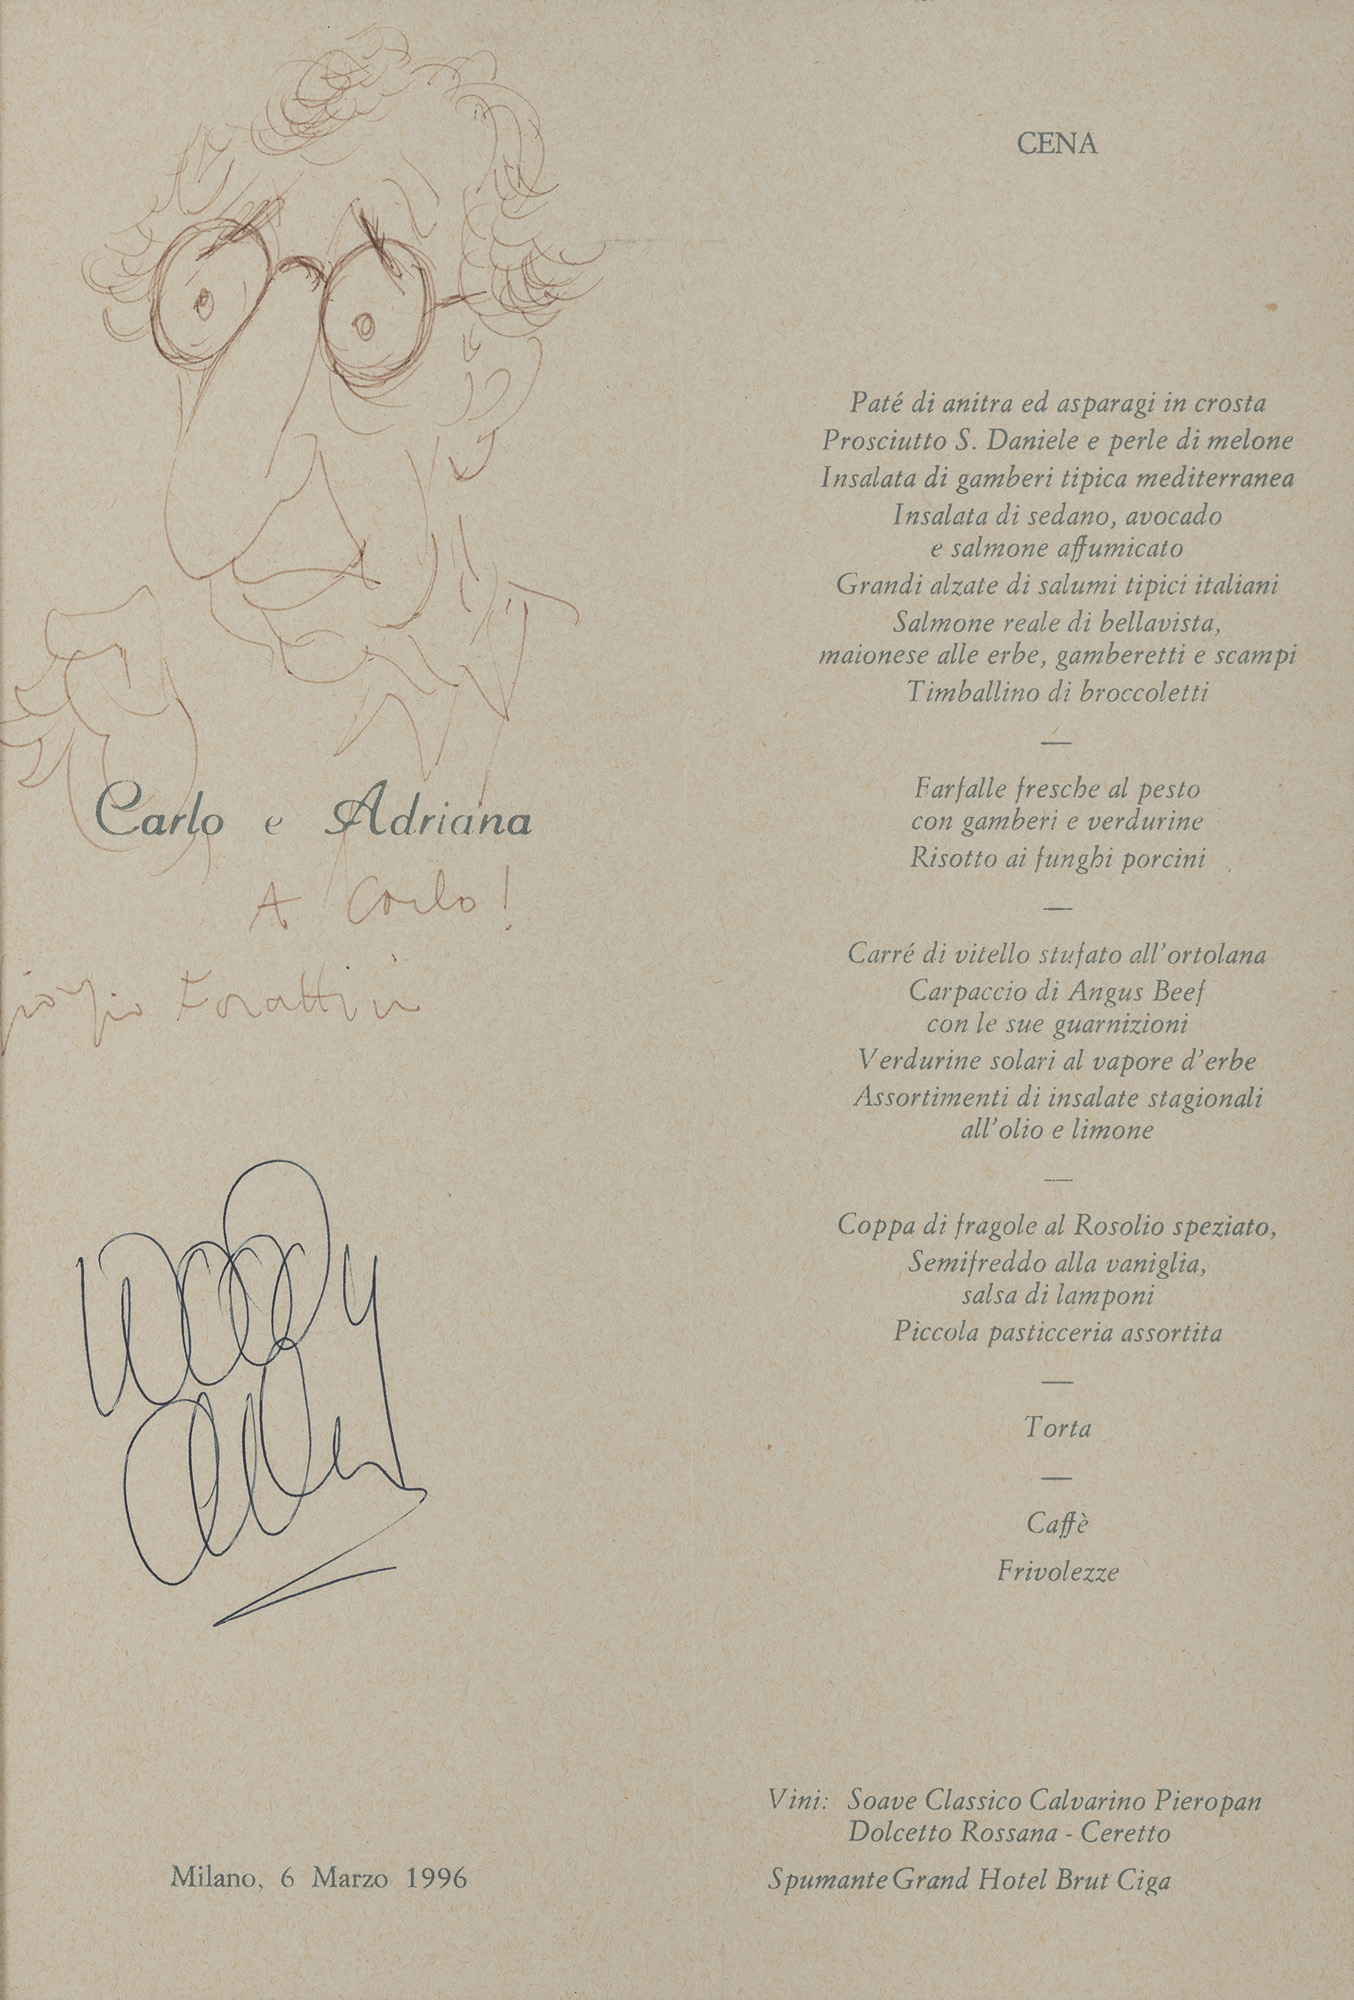 Carlo e Adriana
A Carlo!
Giorgio Forattini
Woody
Allen
Milano, 6 Marzo 1996
CENA
Paté di anitra ed asparagi in crosta
Prosciutto S. Daniele e perle di melone
Insalata di gamberi tipica mediterranea
Insalata di sedano, avocado
e salmone affumicato
Grandi alzate di salumi tipici italiani
Salmone reale di bellavista,
maionese alle erbe, gamberetti e scampi
Timballino di broccoletti
—
Farfalle fresche al pesto
con gamberi e verdurine
Risotto ai funghi porcini
—
Carré di vitello stufato all'ortolana
Carpaccio di Angus Beef
con le sue guarnizioni
Verdurine solari al vapore d'erbe
Assortimenti di insalate stagionali
all'olio e limone
—
Coppa di fragole al Rosolio speziato,
Semifreddo alla vaniglia,
salsa di lamponi
Piccola pasticceria assortita
—
Torta
—
Caffè
Frivolezze
Vini: Soave Classico Calvarino Pieropan
Dolcetto Rossana - Ceretto
Spumante Grand Hotel Brut Ciga